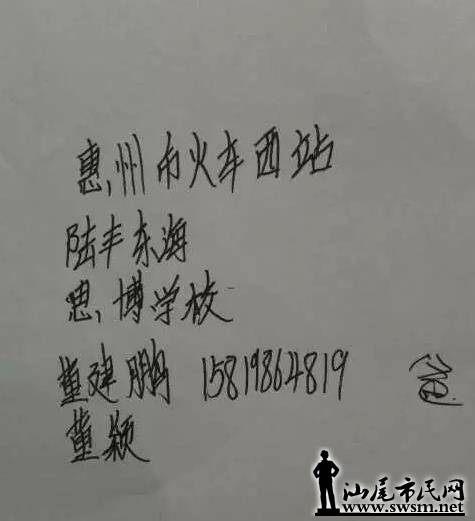 惠州市火车西站
陆丰东海
思博学校
董建鹏 15819864819
董颖
汕尾市民网
www.swsm.net